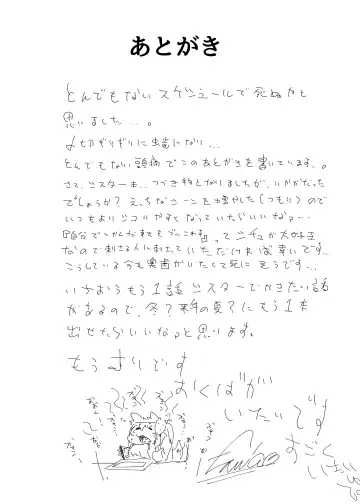 あとがき
とんでもないスケジュールで死ぬかと
思いました…。
〆切ぎりぎりに虫歯になり…
とんでもない頭痛でこのあとがきを書いています…。
さて、シスター本、つづき物となりましたが、いかがだった
でしょうか?えっちなシーンを増やした(つもり)ので
いつもよりシコりやすくなっていたらいいなっ…
って シチュが大好き
なので刺さる人に刺さっていただければ幸いです…
こうしている今も奥歯がいたくて死にそうです…
もう1話シスターでかきたい話
があるので、冬?来年の夏?にもう1本
出せたらいいなっと思います。
もうまりです
おくばが
いたいです
すごく
いたい